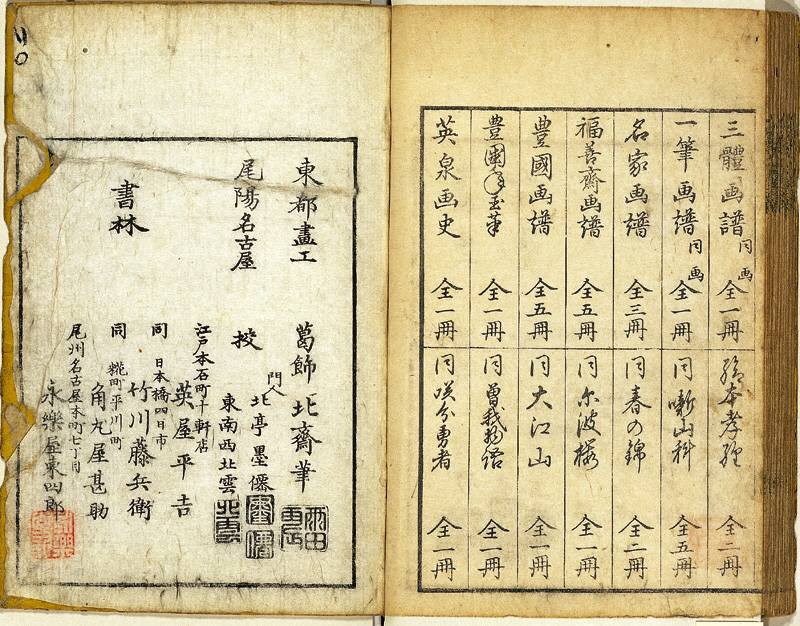 三體画譜 同画 全一冊
一筆画譜 同画 全一冊
名家画譜 全三冊
福善齋画譜 全五冊
豊國画譜 全五冊
豊國年玉筆 全一冊
英泉画史 全一冊
絵本孝經 全二冊
同噺山科 全五冊
同春の錦 全二冊
同尓波桜 全一冊
同大江山 全一冊
同曽我物語 全一冊
同咲分勇者 全一冊
東都畫工 葛飾北齋筆
尾陽名古屋 校
門人 北亭墨僊
東南西北雲
書林
江戸本石町十軒店
英屋平吉
同 日本橋四日市
竹川藤兵衛
同 糀町平川町
角丸屋甚助
尾州名古屋本町七丁目
永樂屋東四郎